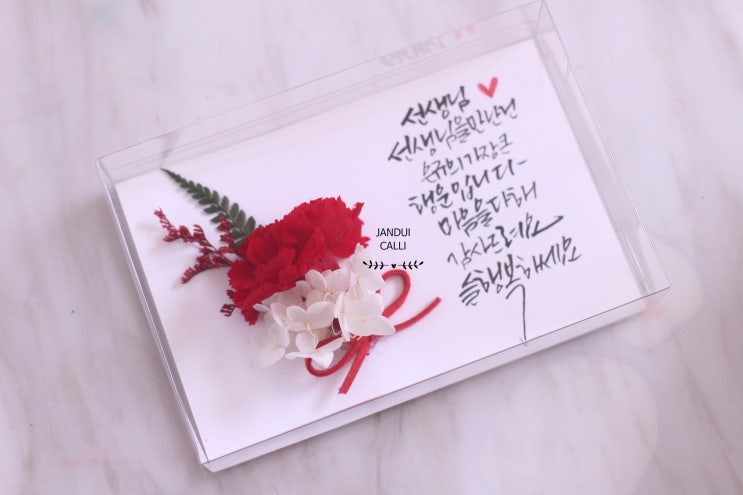 선생님
선생님을 만난건
순규의 가장 큰
행운입니다-
마음을 다해
감사드려요
늘 행복하세요
JANDUI
CALLI